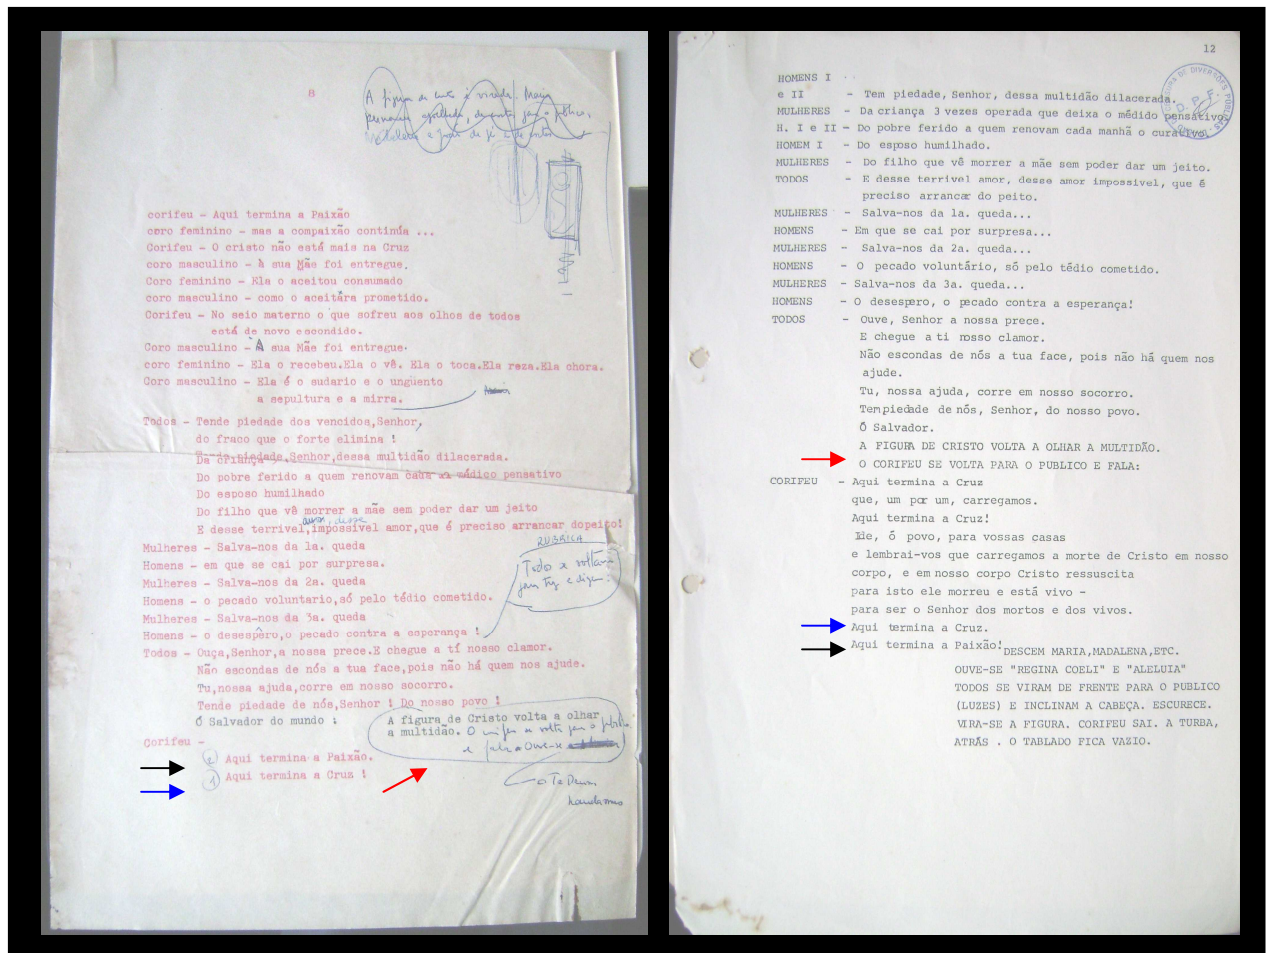 8
A figura de
corifeu - Aqui termina a Paixão
coro feminino - mas a compaixão continúa ...
Corifeu - O cristo não está mais na Cruz
coro masculino - À sua Mãe foi entregue.
Coro feminino - Ela o aceitou consumado
coro masculino - como o aceitára prometido.
Corifeu - No seio materno o que sofreu aos olhos de todos
está de novo escondido.
Coro masculino - À sua Mãe foi entregue.
coro feminino - Ela o recebeu.Ela o vê. Ela o toca.Ela reza.Ela chora.
Coro masculino - Ela é o sudario e o unguento
a sepultura e a mirra.
Todos - Tende piedade dos vencidos,Senhor,
do fraco que o forte elimina !
Da criança piedade,Senhor,dessa multidão dilacerada.
Do pobre ferido a quem renovam cada médico pensativo
Do esposo humilhado
Do filho que vê morrer a mãe sem poder dar um jeito
amor, desse
E desse terrivel,impossivel amor,que é preciso arrancar dopeito!
Mulheres - Salva-nos da 1a. queda
RUBRICA
Homens - em que se cai por surpresa.
Todos se voltam
Mulheres - Salva-nos da 2a. queda
e dizem:
Homens - o pecado voluntario,só pelo tédio cometido.
Mulheres - Salva-nos da 3a. queda
Homens - o desespêro,o pecado contra a esperança !
Todos - Ouça,Senhor,a nossa prece.E chegue a tí nosso clamor.
Não escondas de nós a tua face,pois não há quem nos ajude.
Tu,nossa ajuda,corre em nosso socorro.
Tende piedade de nós,Senhor ! Do nosso povo !
Ó Salvador do mundo :
A figura de Cristo volta a olhar
a multidão. O corifeu se volta para o público
e fala Ouve-se
Corifeu -
2 Aqui termina a Paixão.
1 Aqui termina a Cruz !
o Te Deum
laudamus
12
D. P. F.
HOMENS I
e II - Tem piedade, Senhor, dessa multidão dilacerada.
MULHERES - Da criança 3 vezes operada que deixa o médido pensativo
H. I e II - Do pobre ferido a quem renovam cada manhã o curativo.
HOMEM I - Do esposo humilhado.
MULHERES - Do filho que vê morrer a mãe sem poder dar um jeito.
TODOS - E desse terrivel amor, desse amor impossivel, que é
preciso arrancar do peito.
MULHERES - Salva-nos da 1a. queda...
HOMENS - Em que se cai por surpresa...
MULHERES - Salva-nos da 2a. queda...
HOMENS - O pecado voluntário, só pelo tédio cometido.
MULHERES - Salva-nos da 3a. queda...
HOMENS - O desespero, o pecado contra a esperança!
TODOS - Ouve, Senhor a nossa prece.
E chegue a ti nosso clamor.
Não escondas de nós a tua face, pois não há quem nos
ajude.
Tu, nossa ajuda, corre em nosso socorro.
Tem piedade de nós, Senhor, do nosso povo.
Ó Salvador.
A FIGURA DE CRISTO VOLTA A OLHAR A MULTIDÃO.
O CORIFEU SE VOLTA PARA O PUBLICO E FALA:
CORIFEU - Aqui termina a Cruz
que, um por um, carregamos.
Aqui termina a Cruz!
Ide, ó povo, para vossas casas
e lembrai-vos que carregamos a morte de Cristo em nosso
corpo, e em nosso corpo Cristo ressuscita
para isto ele morreu e está vivo -
para ser o Senhor dos mortos e dos vivos.
Aqui termina a Cruz.
Aqui termina a Paixão! DESCEM MARIA,MADALENA,ETC.
OUVE-SE "REGINA COELI" E "ALELUIA"
TODOS SE VIRAM DE FRENTE PARA O PUBLICO
(LUZES) E INCLINAM A CABEÇA. ESCURECE.
VIRA-SE A FIGURA. CORIFEU SAI. A TURBA,
ATRÁS . O TABLADO FICA VAZIO.